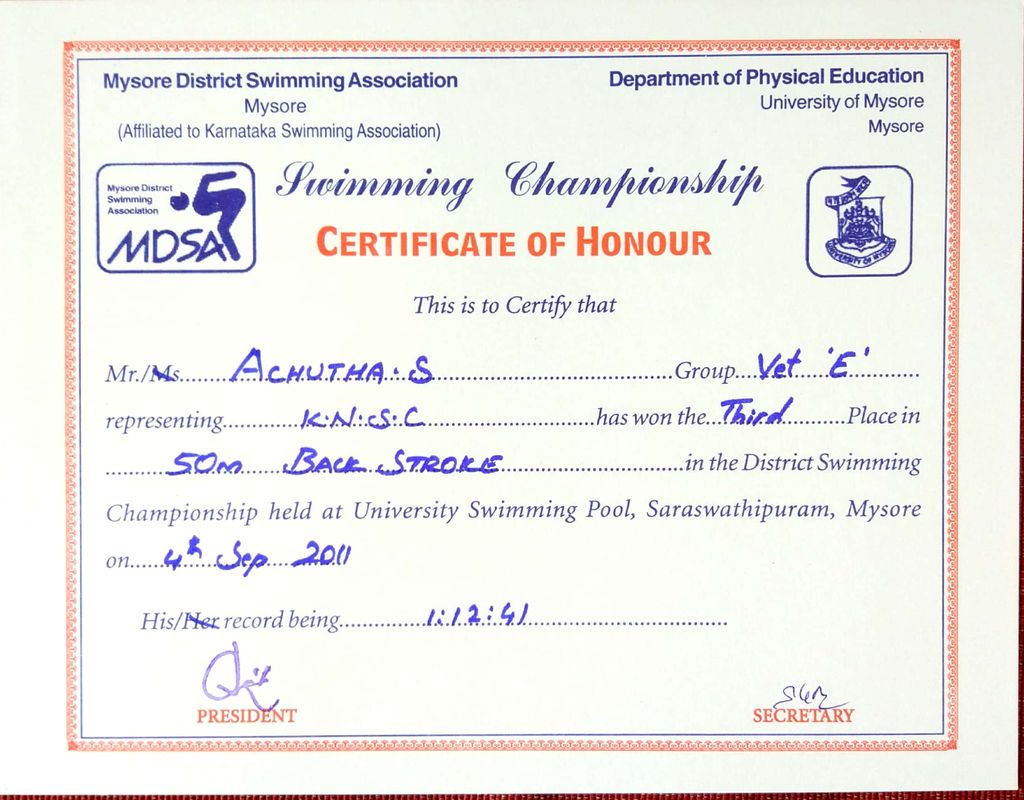 Mysore District Swimming Association
Mysore
(Affiliated to Karnataka Swimming Association)
Department of Physical Education
University of Mysore
Mysore
Mysore District
Swimming
Association
MDSA
Swimming Championship
CERTIFICATE OF HONOUR
UNIVERSITY OF MYSORE
This is to Certify that
Mr./Ms......ACHUTHA.S......Group...Vet 'E'......
representing......K.N.S.C......has won the...Third......Place in
......50m BACK STROKE......in the District Swimming
Championship held at University Swimming Pool, Saraswathipuram, Mysore
on.....4th Sep 2011
His/Her record being......1:12:41......
PRESIDENT
SECRETARY